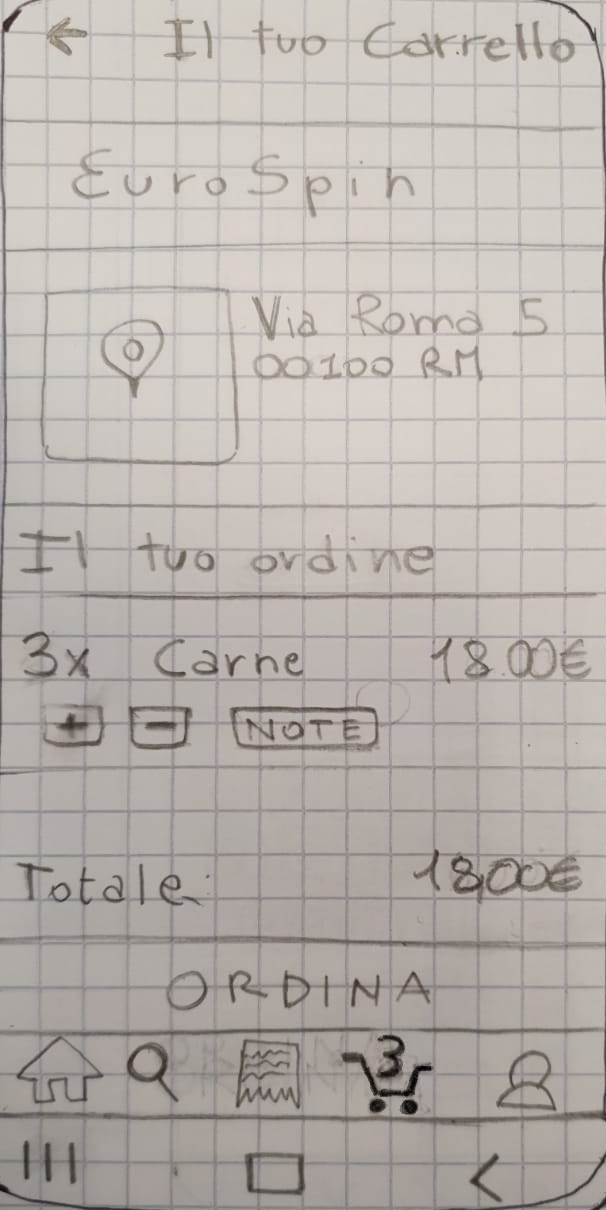 ← Il tuo Carrello
EuroSpin
Via Roma 5
00100 RM
Il tuo ordine
3x Carne 18.00€
+ - NOTE
Totale: 18,00€
ORDINA
3